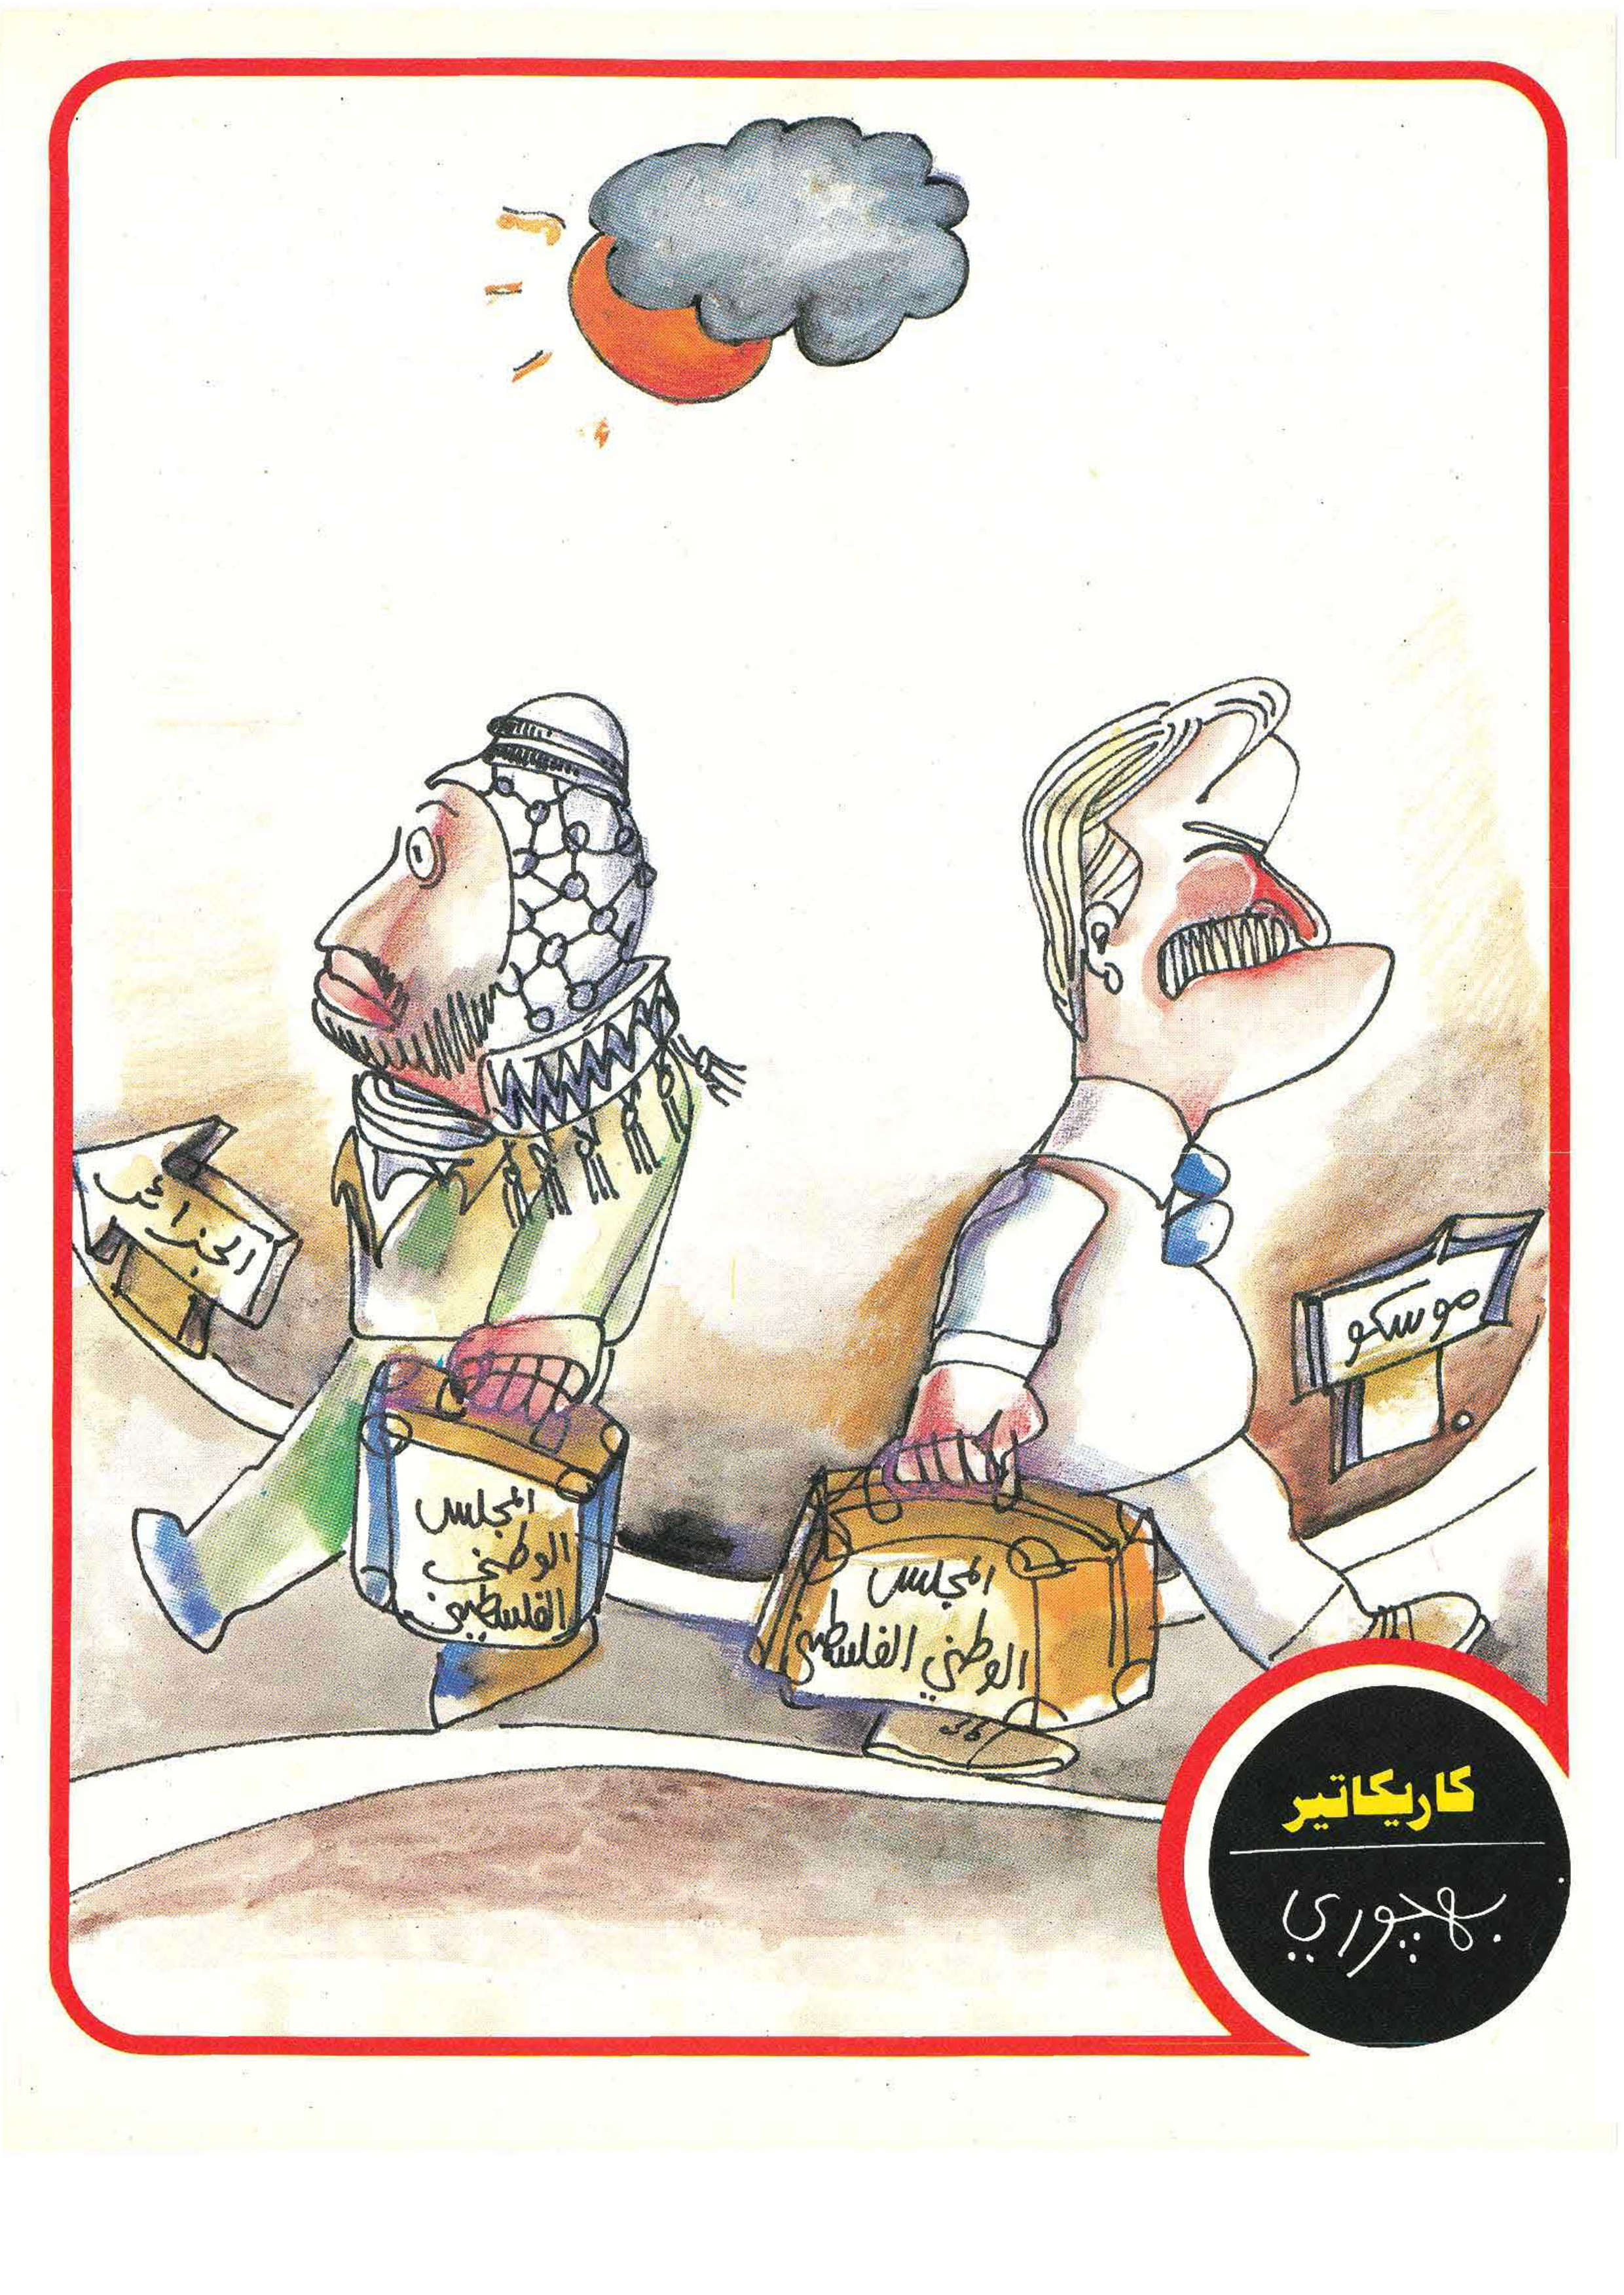 الجزائر
موسكو
المجلس
الوطني
الفلسطيني
المجلس
الوطني الفلسطيني
كاريكاتير
بهچوري